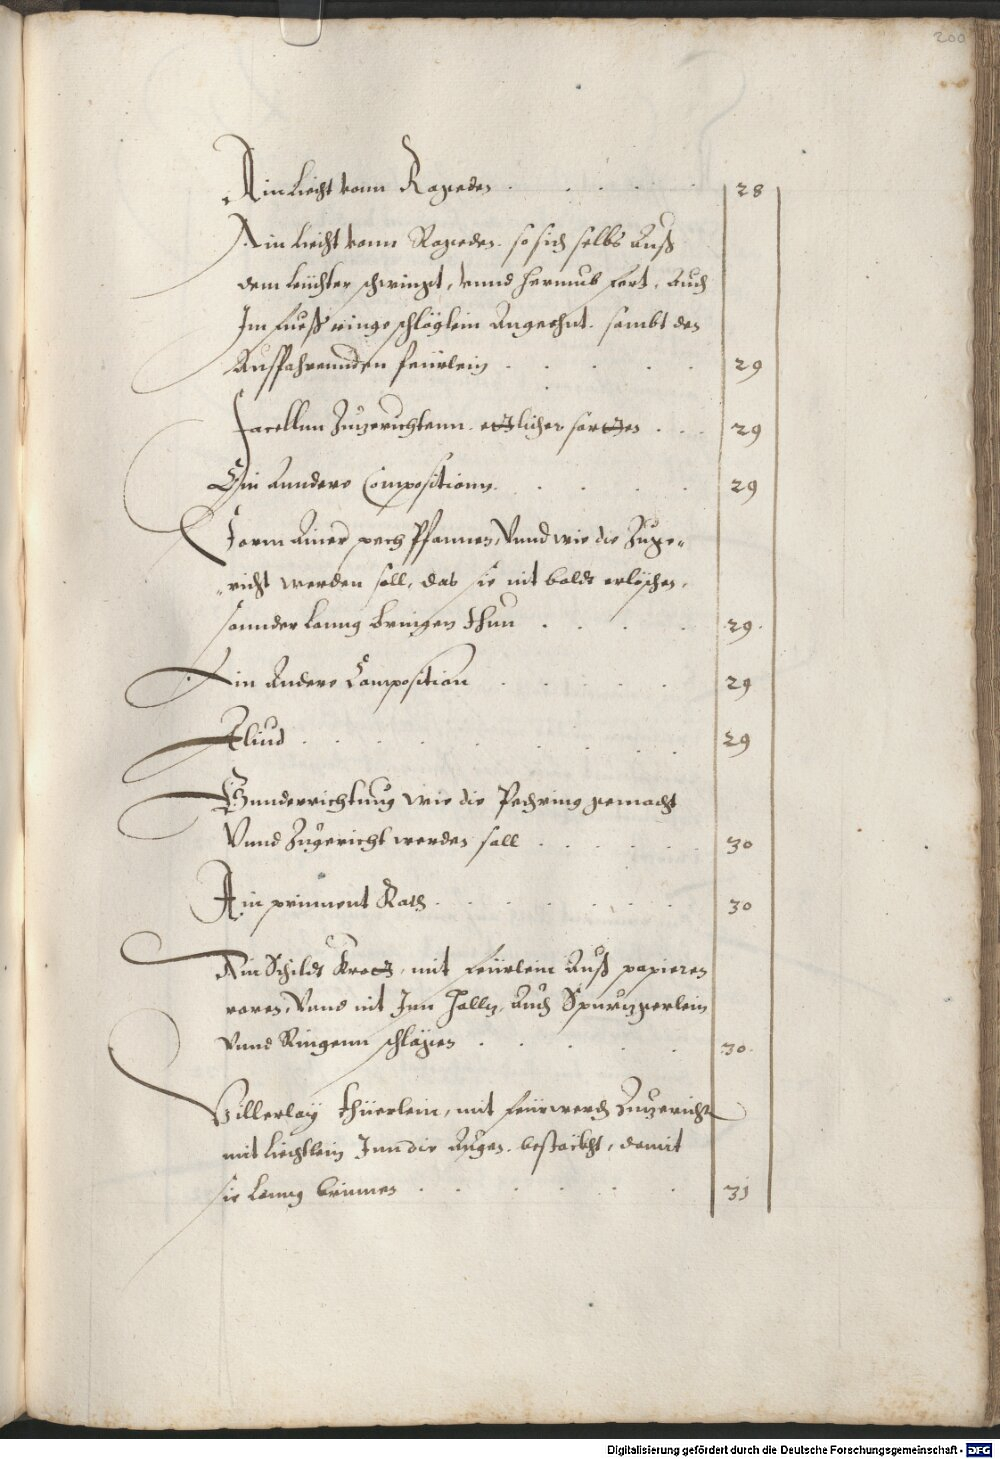 200
Ain Liecht vonn Rageten . . . . . 28
Ain Liecht vonn Rageten. so sich selbs Auß
dem leüchter schwingt, vnnd herumb fert, Auch
Im fueß ringe schleglein Angeehnt. sambt den
Ausfahrennden feürlein . . . . . 29
Facellnn Zuzerichtenn. etzlicher sortten . . . 29
Ein Anndere Composition. . . . . 29
Form Ainer pech Pfannen, Vnnd wie die Zuge„
„richt werden soll, das sie nit baldt erlöschen,
sonnder lanng bringen thun . . . . 29.
Ein Andere Composition . . . . . 29
Aliud . . . . . . . 29
Vnnderrichtung wie die Pechring gemacht
Vnnd Zugericht werden soll . . . . 30
Ain prinnent Rath . . . . . 30
Ain Schildt Krott, mit feürlein Auß papieren
roren, Vnnd mit Inn Auch
vnnd Ringenn schlägen . . . . 30.
Allerlay thüerlein, mit feürwerch Zuzericht
mit liechtlein Inn die Augen. besteckht, damit
sie lanng brinnen . . . . . 31
Digitalisierung gefördert durch die Deutsche Forschungsgemeinschaft - DFG